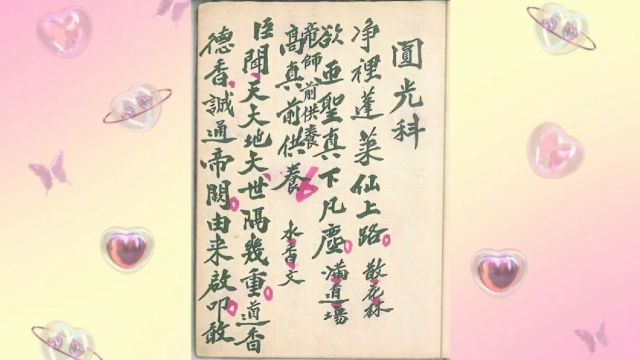 圓光科
净裡蓬萊仙上路 散花林
欲亜聖真下凡塵 滿道場
帝師前供養
高真前供養 水香文
臣聞天大地大世隔幾重道香
德香誠通帝闕由来啟叩敢